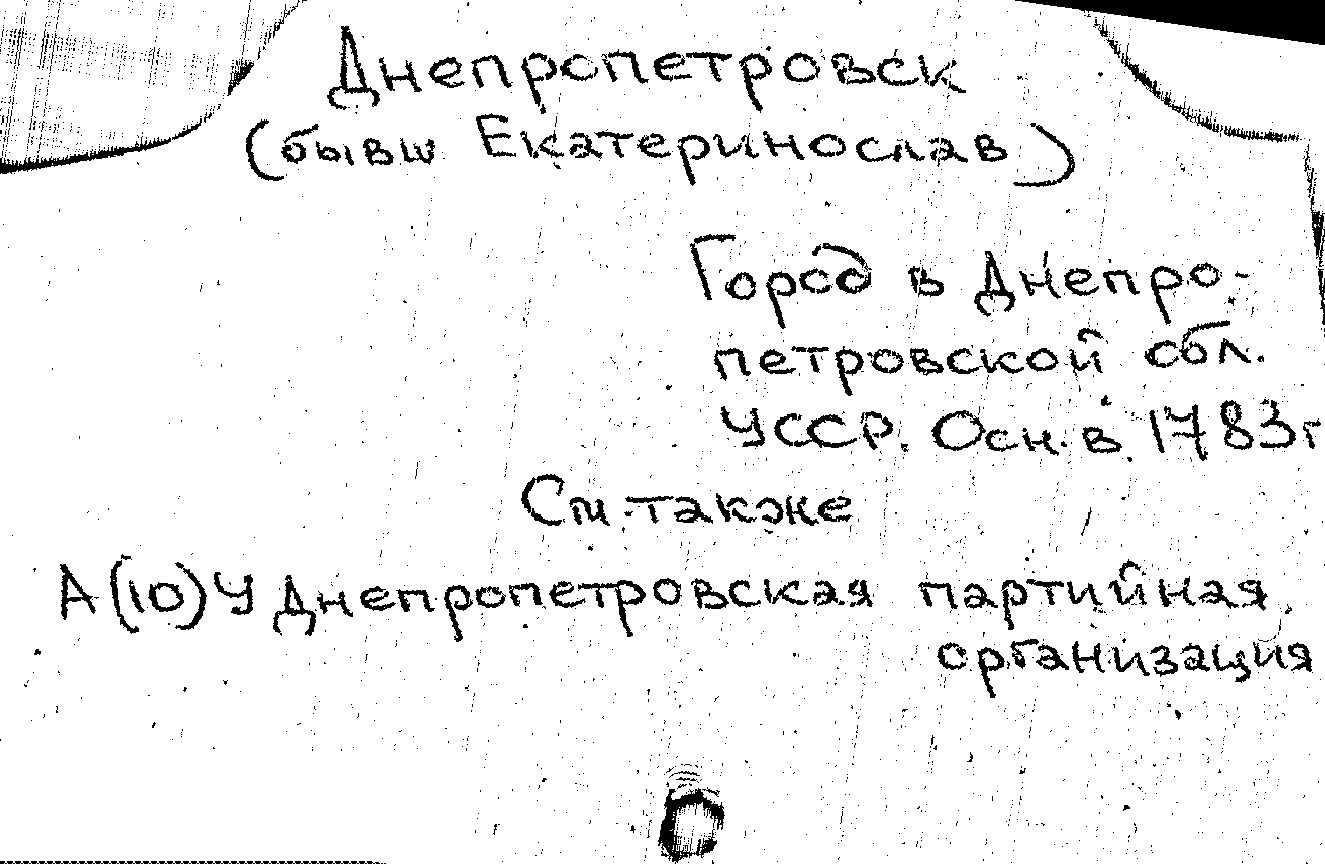 Днепропетровск
(бывш Екатеринослав)
Город в Днепро-
петровской обл.
УССР. Осн. в. 1783г
См. также
А(10)У Днепропетровская партийная
организация